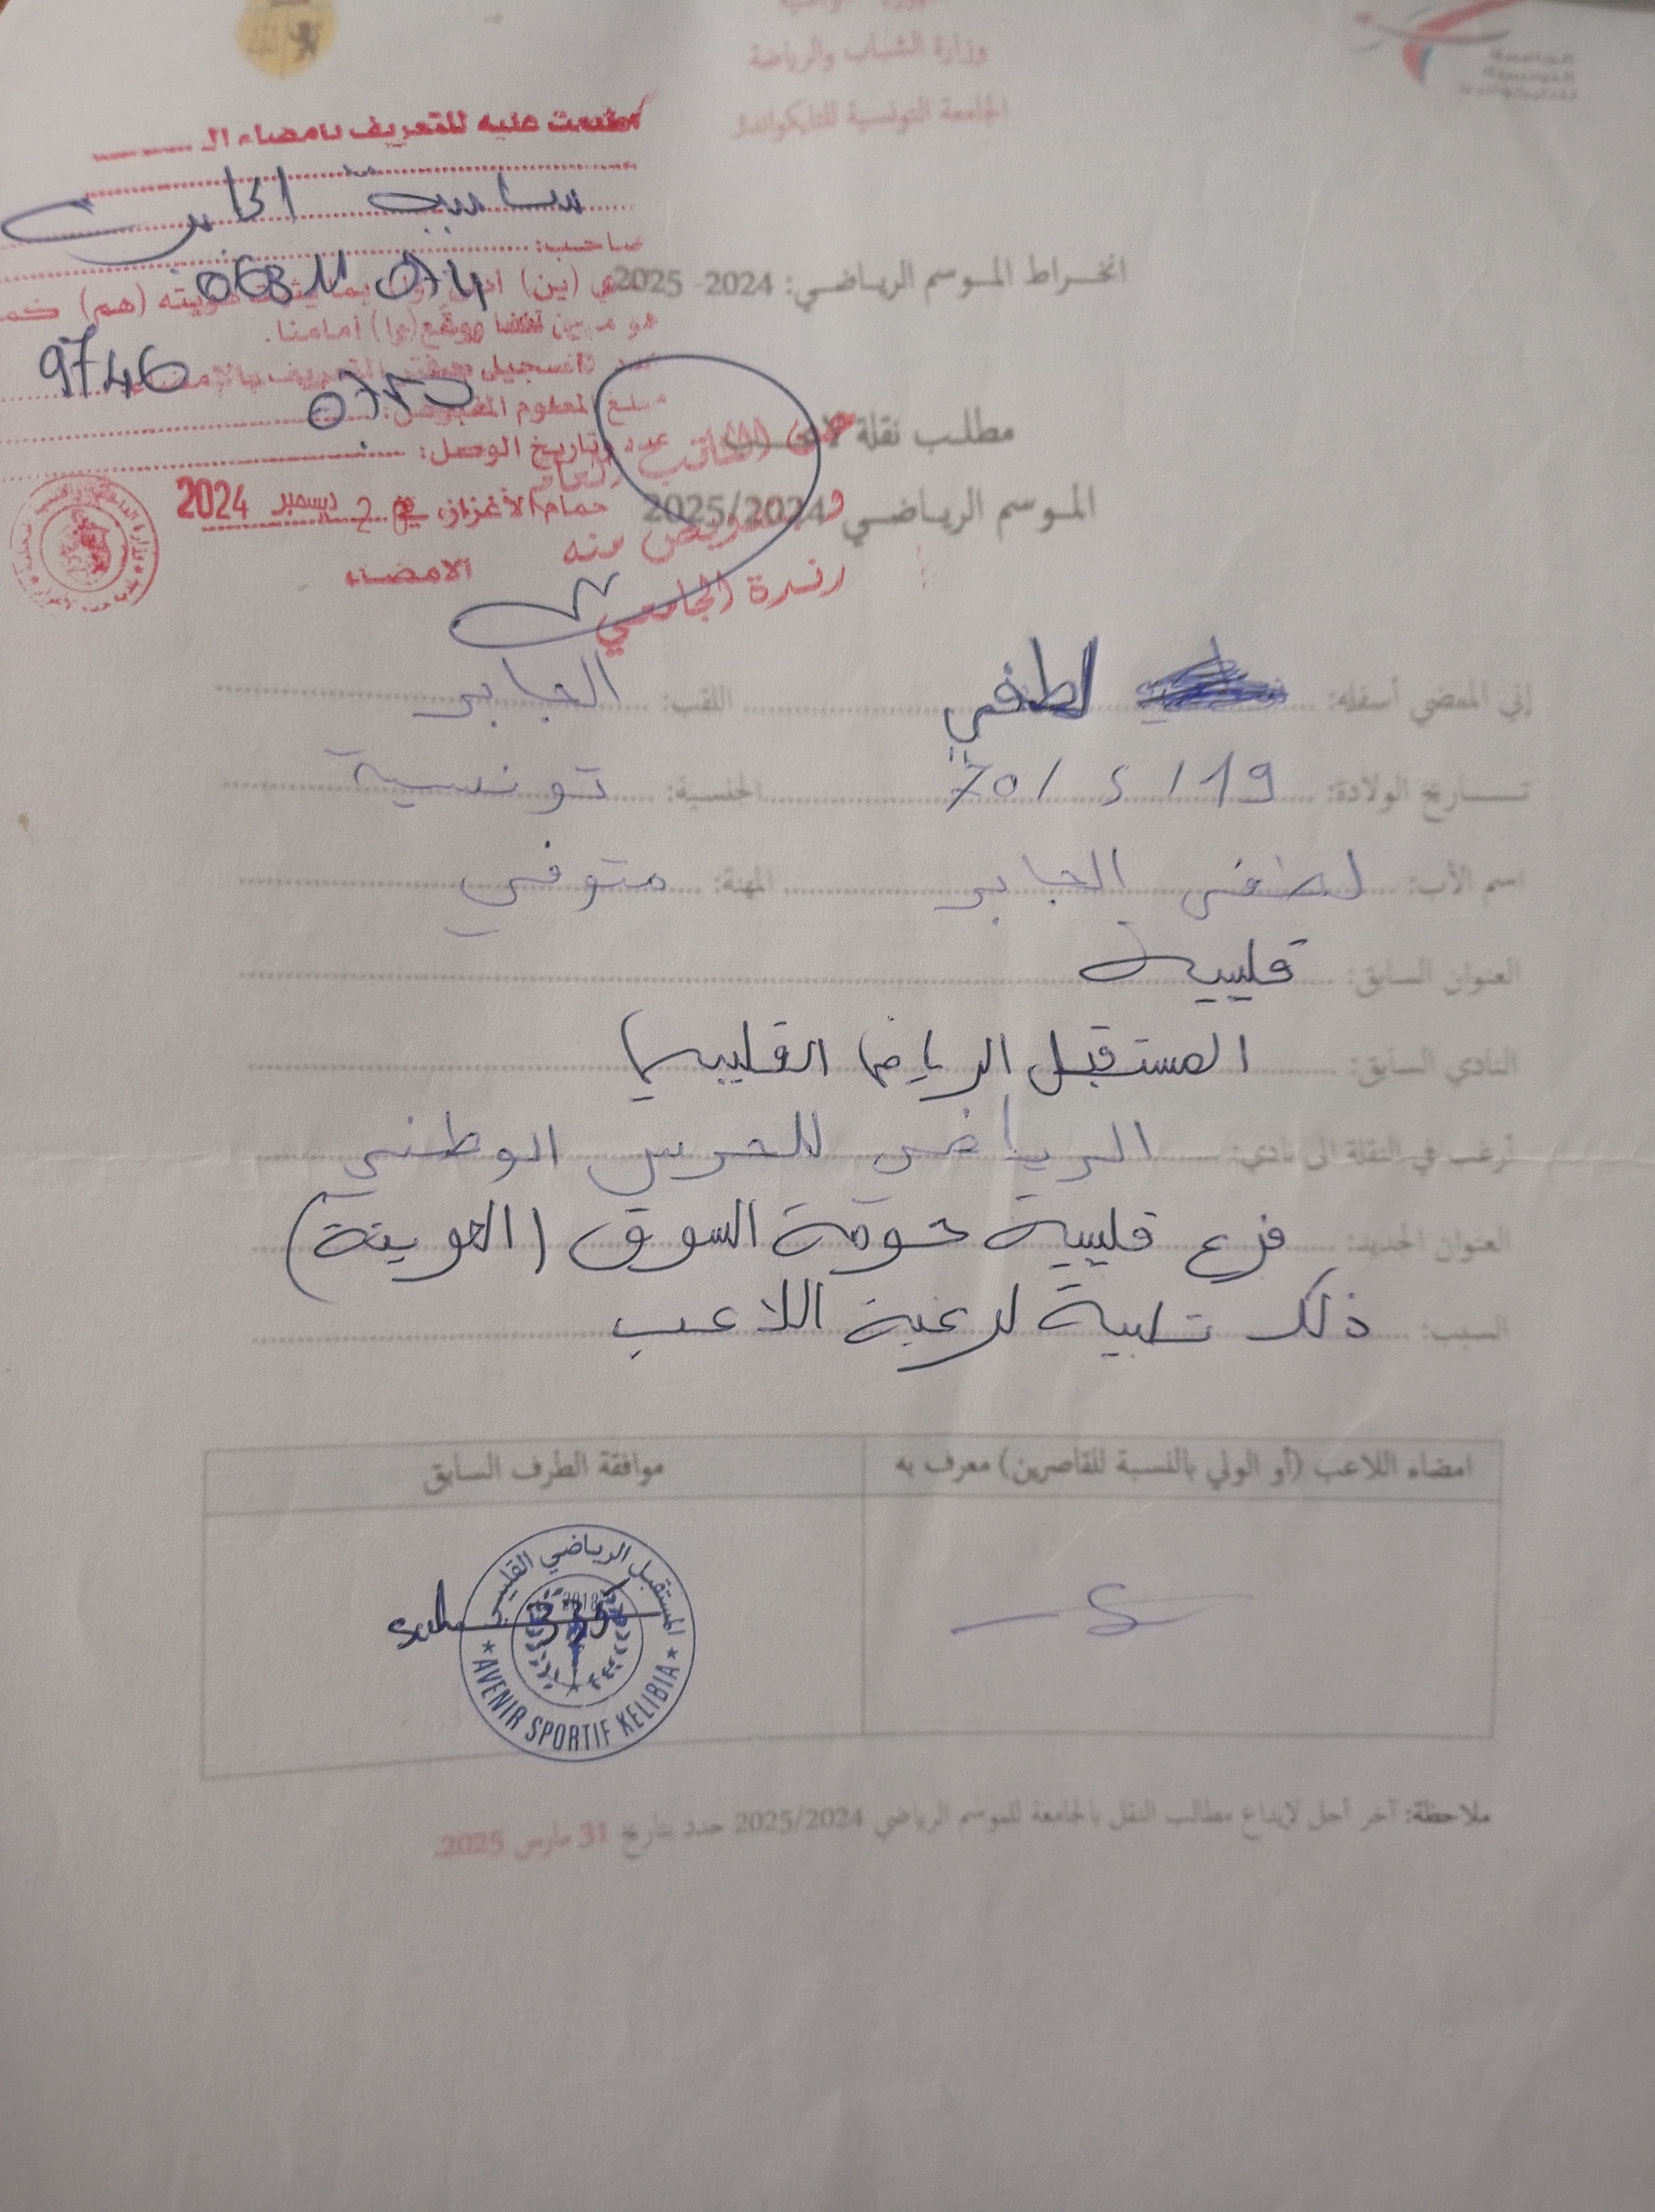 وزارة الشباب والرياضة
الجامعة التونسية للتايكواندو
الجامعة
التونسية
للتايكواندو
للتعريف بامضاء ال
صاحب:
06811074
انخراط الموسم الرياضي: 2024- 2025
هو مبين موقع(وا) أمامنا.
9746
مبلغ المعلوم المقبوض:
0750
عدد وتاريخ الوصل:
مطلب نقلة
الموسم الرياضي 2025/2024
حمام الأغزاز، في 2 ديسمبر 2024
الكاتب العام
وبتفويض منه
الامضاء
رندة الجامعي
إني الممضي أسفله: لطفي اللقب: الجابر
تاريخ الولادة: 19/5/70 الجنسية: تونسية
اسم الأب: لطفي الجابر المهنة: متوفي
العنوان السابق: قليبية
النادي السابق: المستقبل الرياضي القليبي
أرغب في النقلة الى نادي: الرياضي للحرس الوطني
العنوان الجديد: فرع قليبية حومة السوق (العوينة)
السبب: ذلك تلبية لرغبة اللاعب
امضاء اللاعب (أو الولي بالنسبة للقاصرين) معرف به موافقة الطرف السابق
المستقبل الرياضي القليبي
2018
AVENIR SPORTIF KELIBIA
ملاحظة: آخر أجل لإيداع مطالب النقل بالجامعة للموسم الرياضي 2025/2024 حدد بتاريخ 31 مارس 2025.